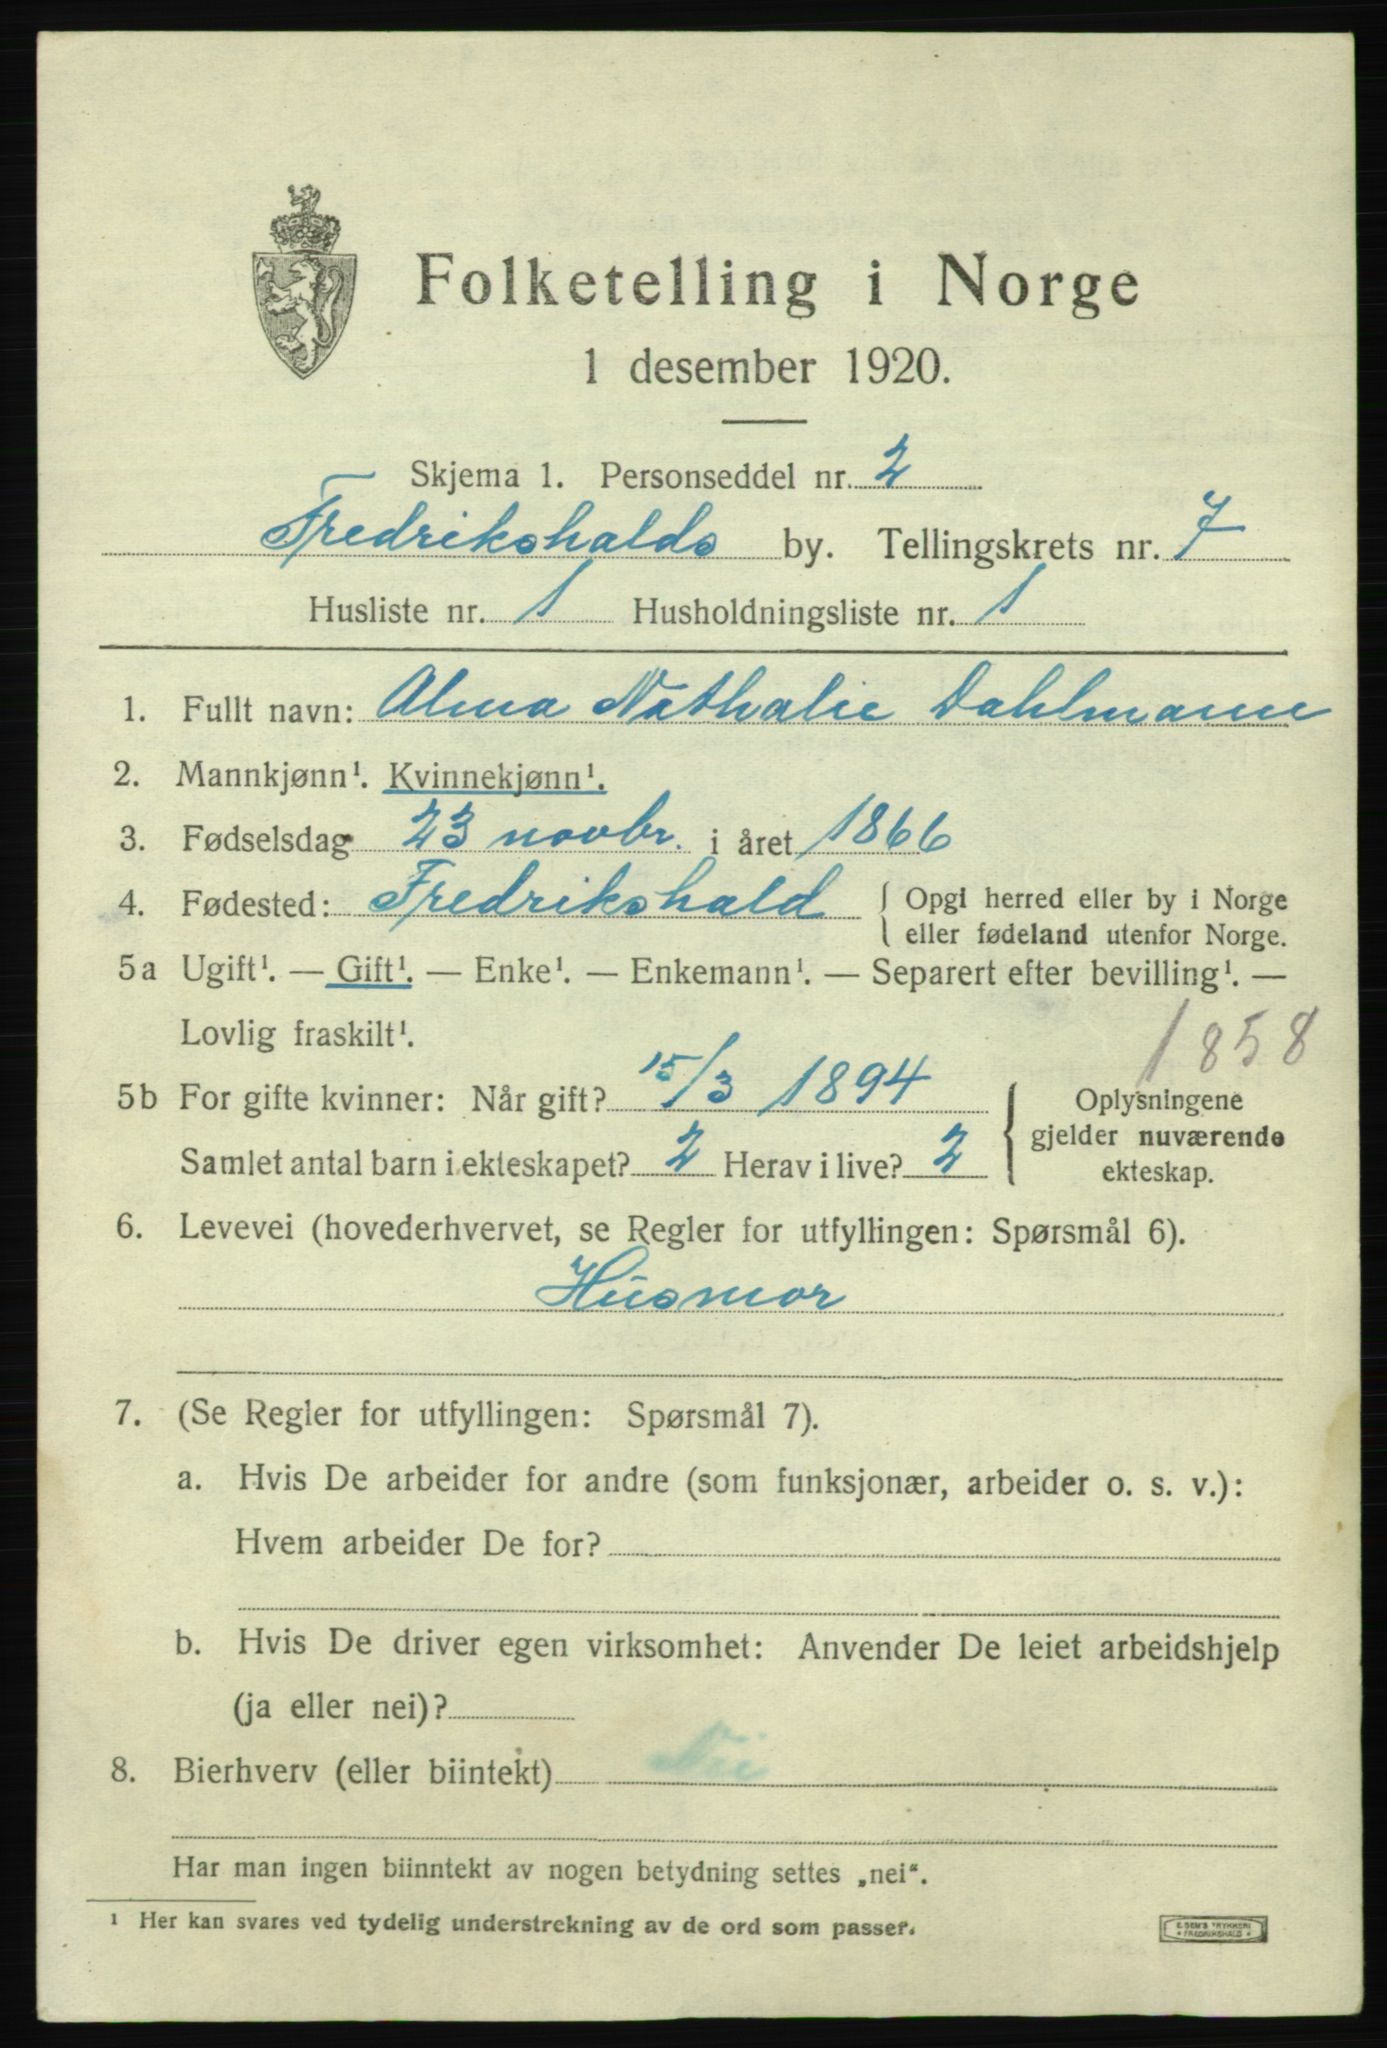 Folketelling i Norge
1 desember 1920.
Skjema 1. Personseddel nr. 2
Fredrikshalds by. Tellingskrets nr. 7
Husliste nr. 1 Husholdningsliste nr. 1
1. Fullt navn: Alma Nathalie Dahlmann
2. Mannkjønn¹. Kvinnekjønn¹.
3. Fødselsdag 23 novbr. i året 1866
4. Fødested: Fredrikshald { Opgi herred eller by i Norge
eller fødeland utenfor Norge.
5a Ugift¹. — Gift¹. — Enke¹. — Enkemann¹. — Separert efter bevilling¹. —
Lovlig fraskilt¹.
1858
5b For gifte kvinner: Når gift? 15/3 1894 } Oplysningene
gjelder nuværende
Samlet antal barn i ekteskapet? 2 Herav i live? 2
ekteskap.
6. Levevei (hovederhvervet, se Regler for utfyllingen: Spørsmål 6).
Husmor
7. (Se Regler for utfyllingen: Spørsmål 7).
a. Hvis De arbeider for andre (som funksjonær, arbeider o. s. v.):
Hvem arbeider De for?
b. Hvis De driver egen virksomhet: Anvender De leiet arbeidshjelp
(ja eller nei)?
8. Bierhverv (eller biintekt) Nei
Har man ingen biinntekt av nogen betydning settes „nei“.
¹ Her kan svares ved tydelig understrekning av de ord som passer.
E. SEM'S TRYKKERI
* FREDRIKSHALD *